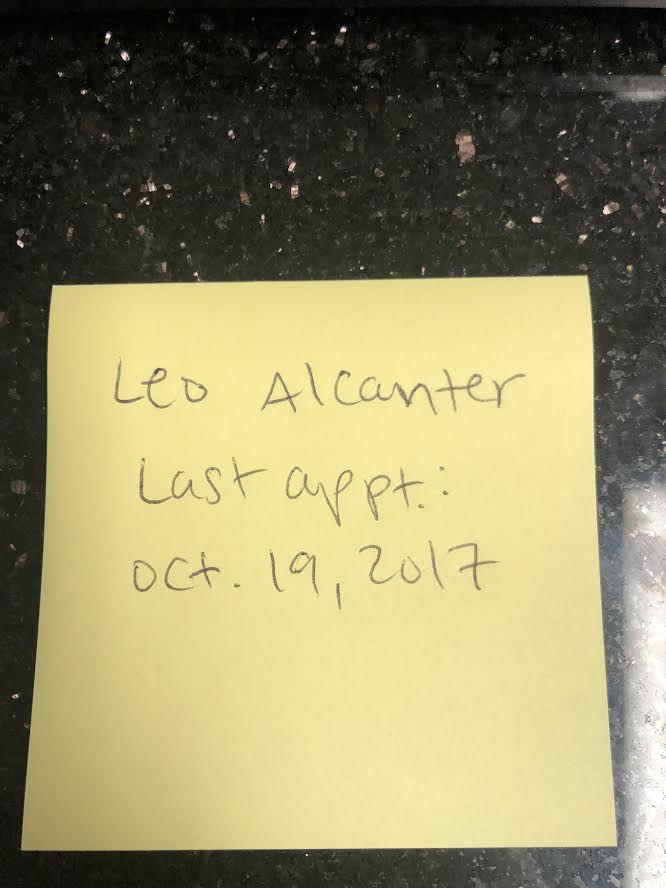 Leo Alcanter
Last appt.:
Oct. 19, 2017